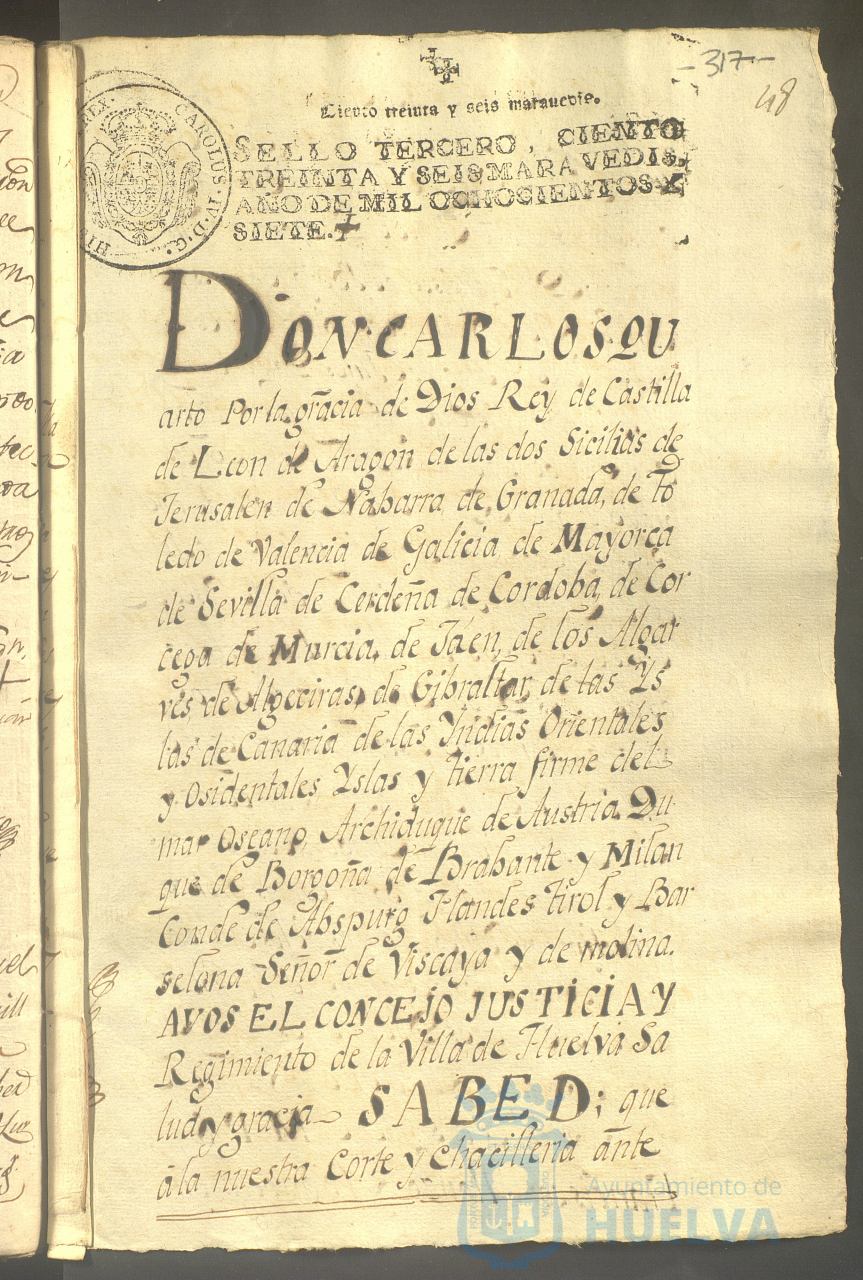 -317-
48
Ciento treinta y seis marauedis.
CAROLUS IV D. G.
HIS
REX
SELLO TERCERO, CIENTO
TREINTA Y SEIS MARAVEDIS,
AÑO DE MIL OCHOCIENTOS Y
SIETE.
DON CARLOS QU
arto Por la grãcia de Dios Rey de Castilla
de Leon de Aragon de las dos Sicilias de
Jerusalen de Nabarra de Granada, de to
ledo de Valencia de Galicia de Mayorca
de Sevilla de Cerdeña de Cordoba, de Cor
cega de Murcia, de Jaen, de los Algar
ves de Algeciras, de Gibraltar, de las Ys
las de Canaria de las Yndias Orientales
y Osidentales Yslas y tierra firme del
mar Oseano, Archiduque de Austria, Du
que de Borgoña de Brabante y Milan
Conde de Abspurg Flandes tirol y Bar
selona Señor de Viscaya y de molina.
AVOS EL CONCEJO JUSTICIA Y
Regimiento de la Villa de Huelva Sa
lud y gracia SABED; que
â la nuestra Corte y Chacilleria ânte
Ayuntamiento de
HUELVA